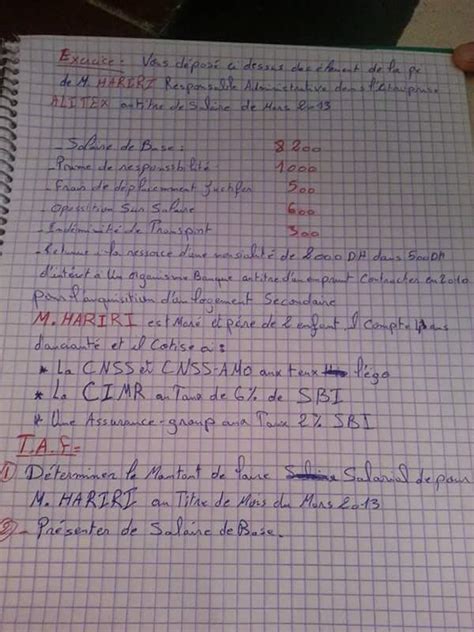 Exercice : Vous déposé ci dessus des élément de la
de M. HARIRI Responsable Administrative dans l'entreprise
ALITEX antitre de Salaire de Mars 2013
- Salaire de Base : 8 200
- Prime de responssbilité 1000
- Frais de déplacemment Justfier 500
- Opossition Sur Salaire 600
- Indeminité de Transport 300
- Retenue à la ressorce d'une mensialité de 2000 DH dans 500 DH
d'intérêt à Un Organisme Banque antitre d'un emprunt Contracter en 2010
pour l'acquisition d'un logement Secondaire
M. HARIRI est Marié et père de 2 enfant il Compte ans
d'anciannté et il Cotise à :
* La CNSS et CNSS-AMO aux teux légo
* La CIMR au Taux de 6% de SBI
* Une Assurance-group ana Taux 2% SBI
T.A.F =
1) Déterminer le Montant de Salarial de pour
M. HARIRI au Titre de Mois du Mars 2013
2) - Présenter de Salaire de Base.